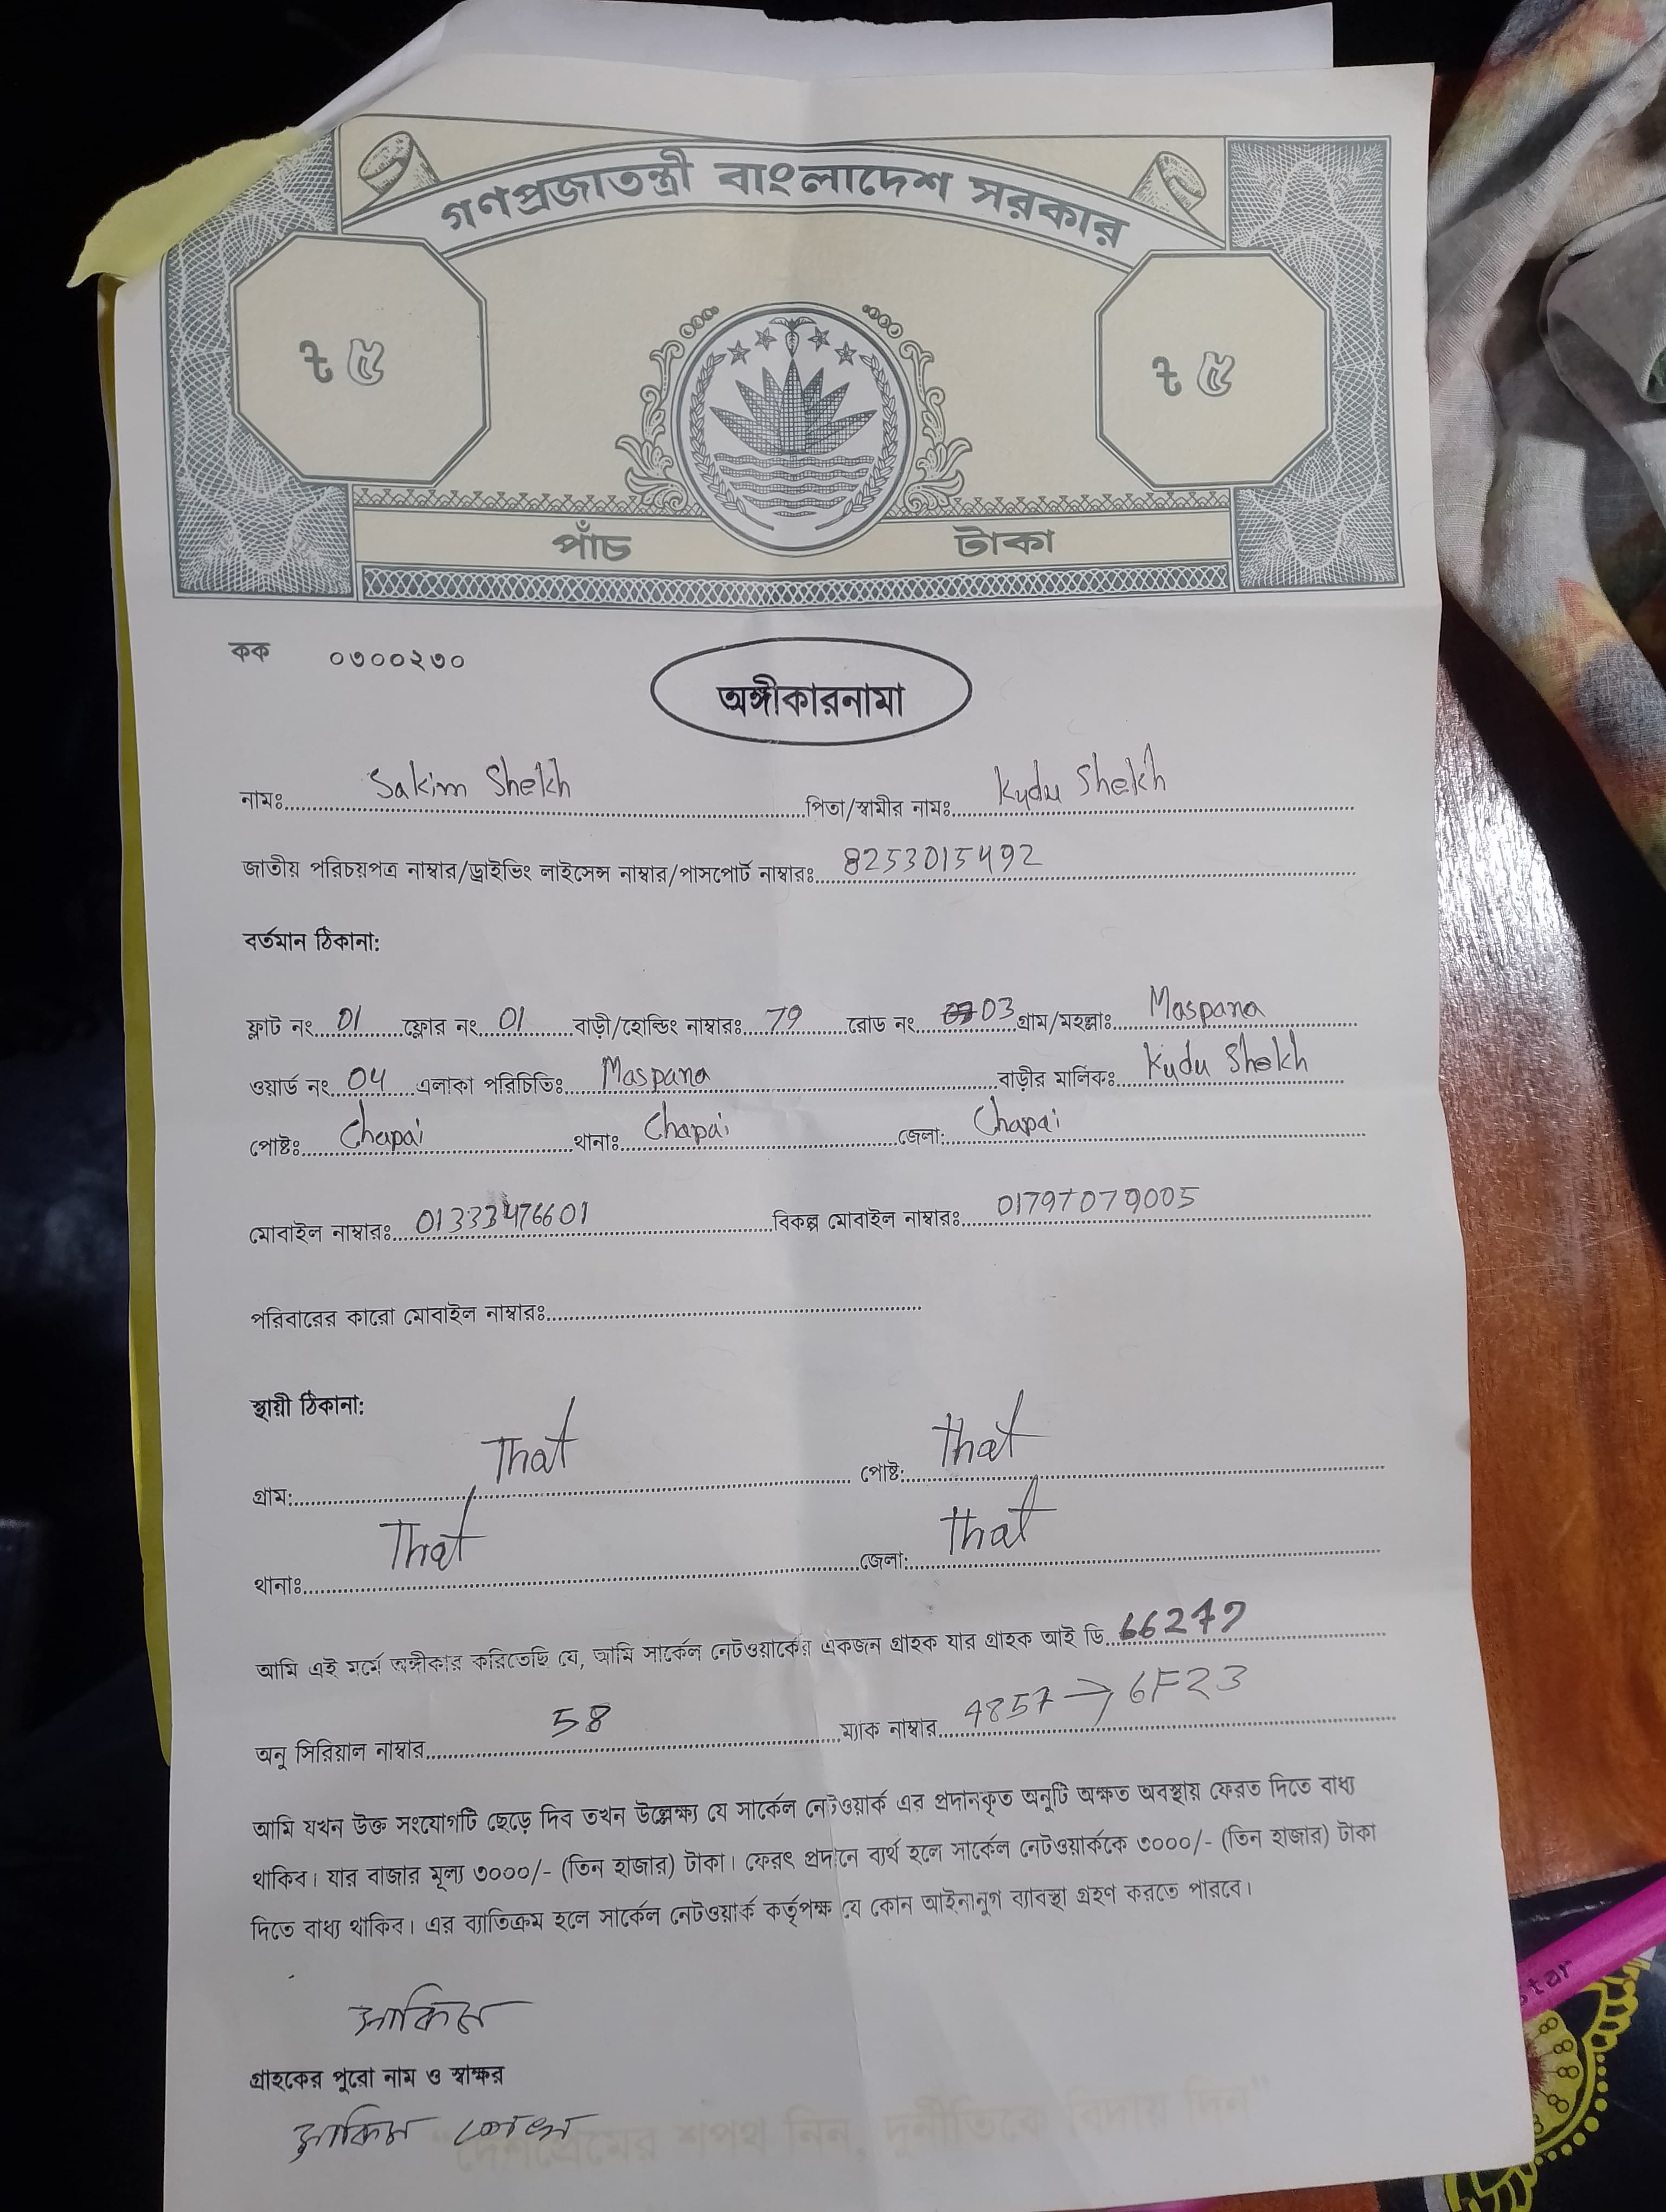 গণপ্রজাতন্ত্রী বাংলাদেশ সরকার
৳ ৫ ৳ ৫
পাঁচ টাকা
কক ০৩০০২৩০
অঙ্গীকারনামা
নামঃ Sakim Shekh পিতা/স্বামীর নামঃ Kudu Shekh
জাতীয় পরিচয়পত্র নাম্বার/ড্রাইভিং লাইসেন্স নাম্বার/পাসপোর্ট নাম্বারঃ 8253015492
বর্তমান ঠিকানা:
ফ্লাট নং 01 ফ্লোর নং 01 বাড়ী/হোল্ডিং নাম্বারঃ 79 রোড নং 03 গ্রাম/মহল্লাঃ Maspana
ওয়ার্ড নং 04 এলাকা পরিচিতিঃ Maspana বাড়ীর মালিকঃ Kudu Shekh
পোষ্টঃ Chapai থানাঃ Chapai জেলা: Chapai
মোবাইল নাম্বারঃ 01333476601 বিকল্প মোবাইল নাম্বারঃ 01797079005
পরিবারের কারো মোবাইল নাম্বারঃ
স্থায়ী ঠিকানা:
গ্রাম: That পোষ্ট: That
থানাঃ That জেলা: That
আমি এই মর্মে অঙ্গীকার করিতেছি যে, আমি সার্কেল নেটওয়ার্কের একজন গ্রাহক যার গ্রাহক আই ডি 66279
অনু সিরিয়াল নাম্বার 58 ম্যাক নাম্বার 4857 → 6F23
আমি যখন উক্ত সংযোগটি ছেড়ে দিব তখন উল্লেক্ষ্য যে সার্কেল নেটওয়ার্ক এর প্রদানকৃত অনুটি অক্ষত অবস্থায় ফেরত দিতে বাধ্য
থাকিব। যার বাজার মূল্য ৩০০০/- (তিন হাজার) টাকা। ফেরৎ প্রদানে ব্যর্থ হলে সার্কেল নেটওয়ার্ককে ৩০০০/- (তিন হাজার) টাকা
দিতে বাধ্য থাকিব। এর ব্যাতিক্রম হলে সার্কেল নেটওয়ার্ক কর্তৃপক্ষ যে কোন আইনানুগ ব্যাবস্থা গ্রহণ করতে পারবে।
সাকিম
গ্রাহকের পুরো নাম ও স্বাক্ষর
সাকিম সেখ
"দেশপ্রেমের শপথ নিন, দুর্নীতিকে বিদায় দিন"
star